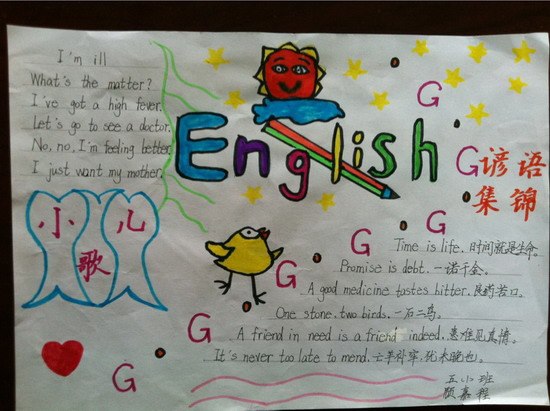 I'm ill
What's the matter?
I've got a high fever.
Let's go to see a doctor.
No, no, I'm feeling better.
I just want my mother.
English
小儿
歌
G
G
谚语
集锦
G
G
G
G
G
G
Time is life. 时间就是生命。
Promise is debt. 一诺千金。
A good medicine tastes bitter. 良药苦口。
One stone, two birds. 一石二鸟。
A friend in need is a friend indeed. 患难见真情。
It's never too late to mend. 亡羊补牢, 犹未晚也。
五小班
顾嘉程